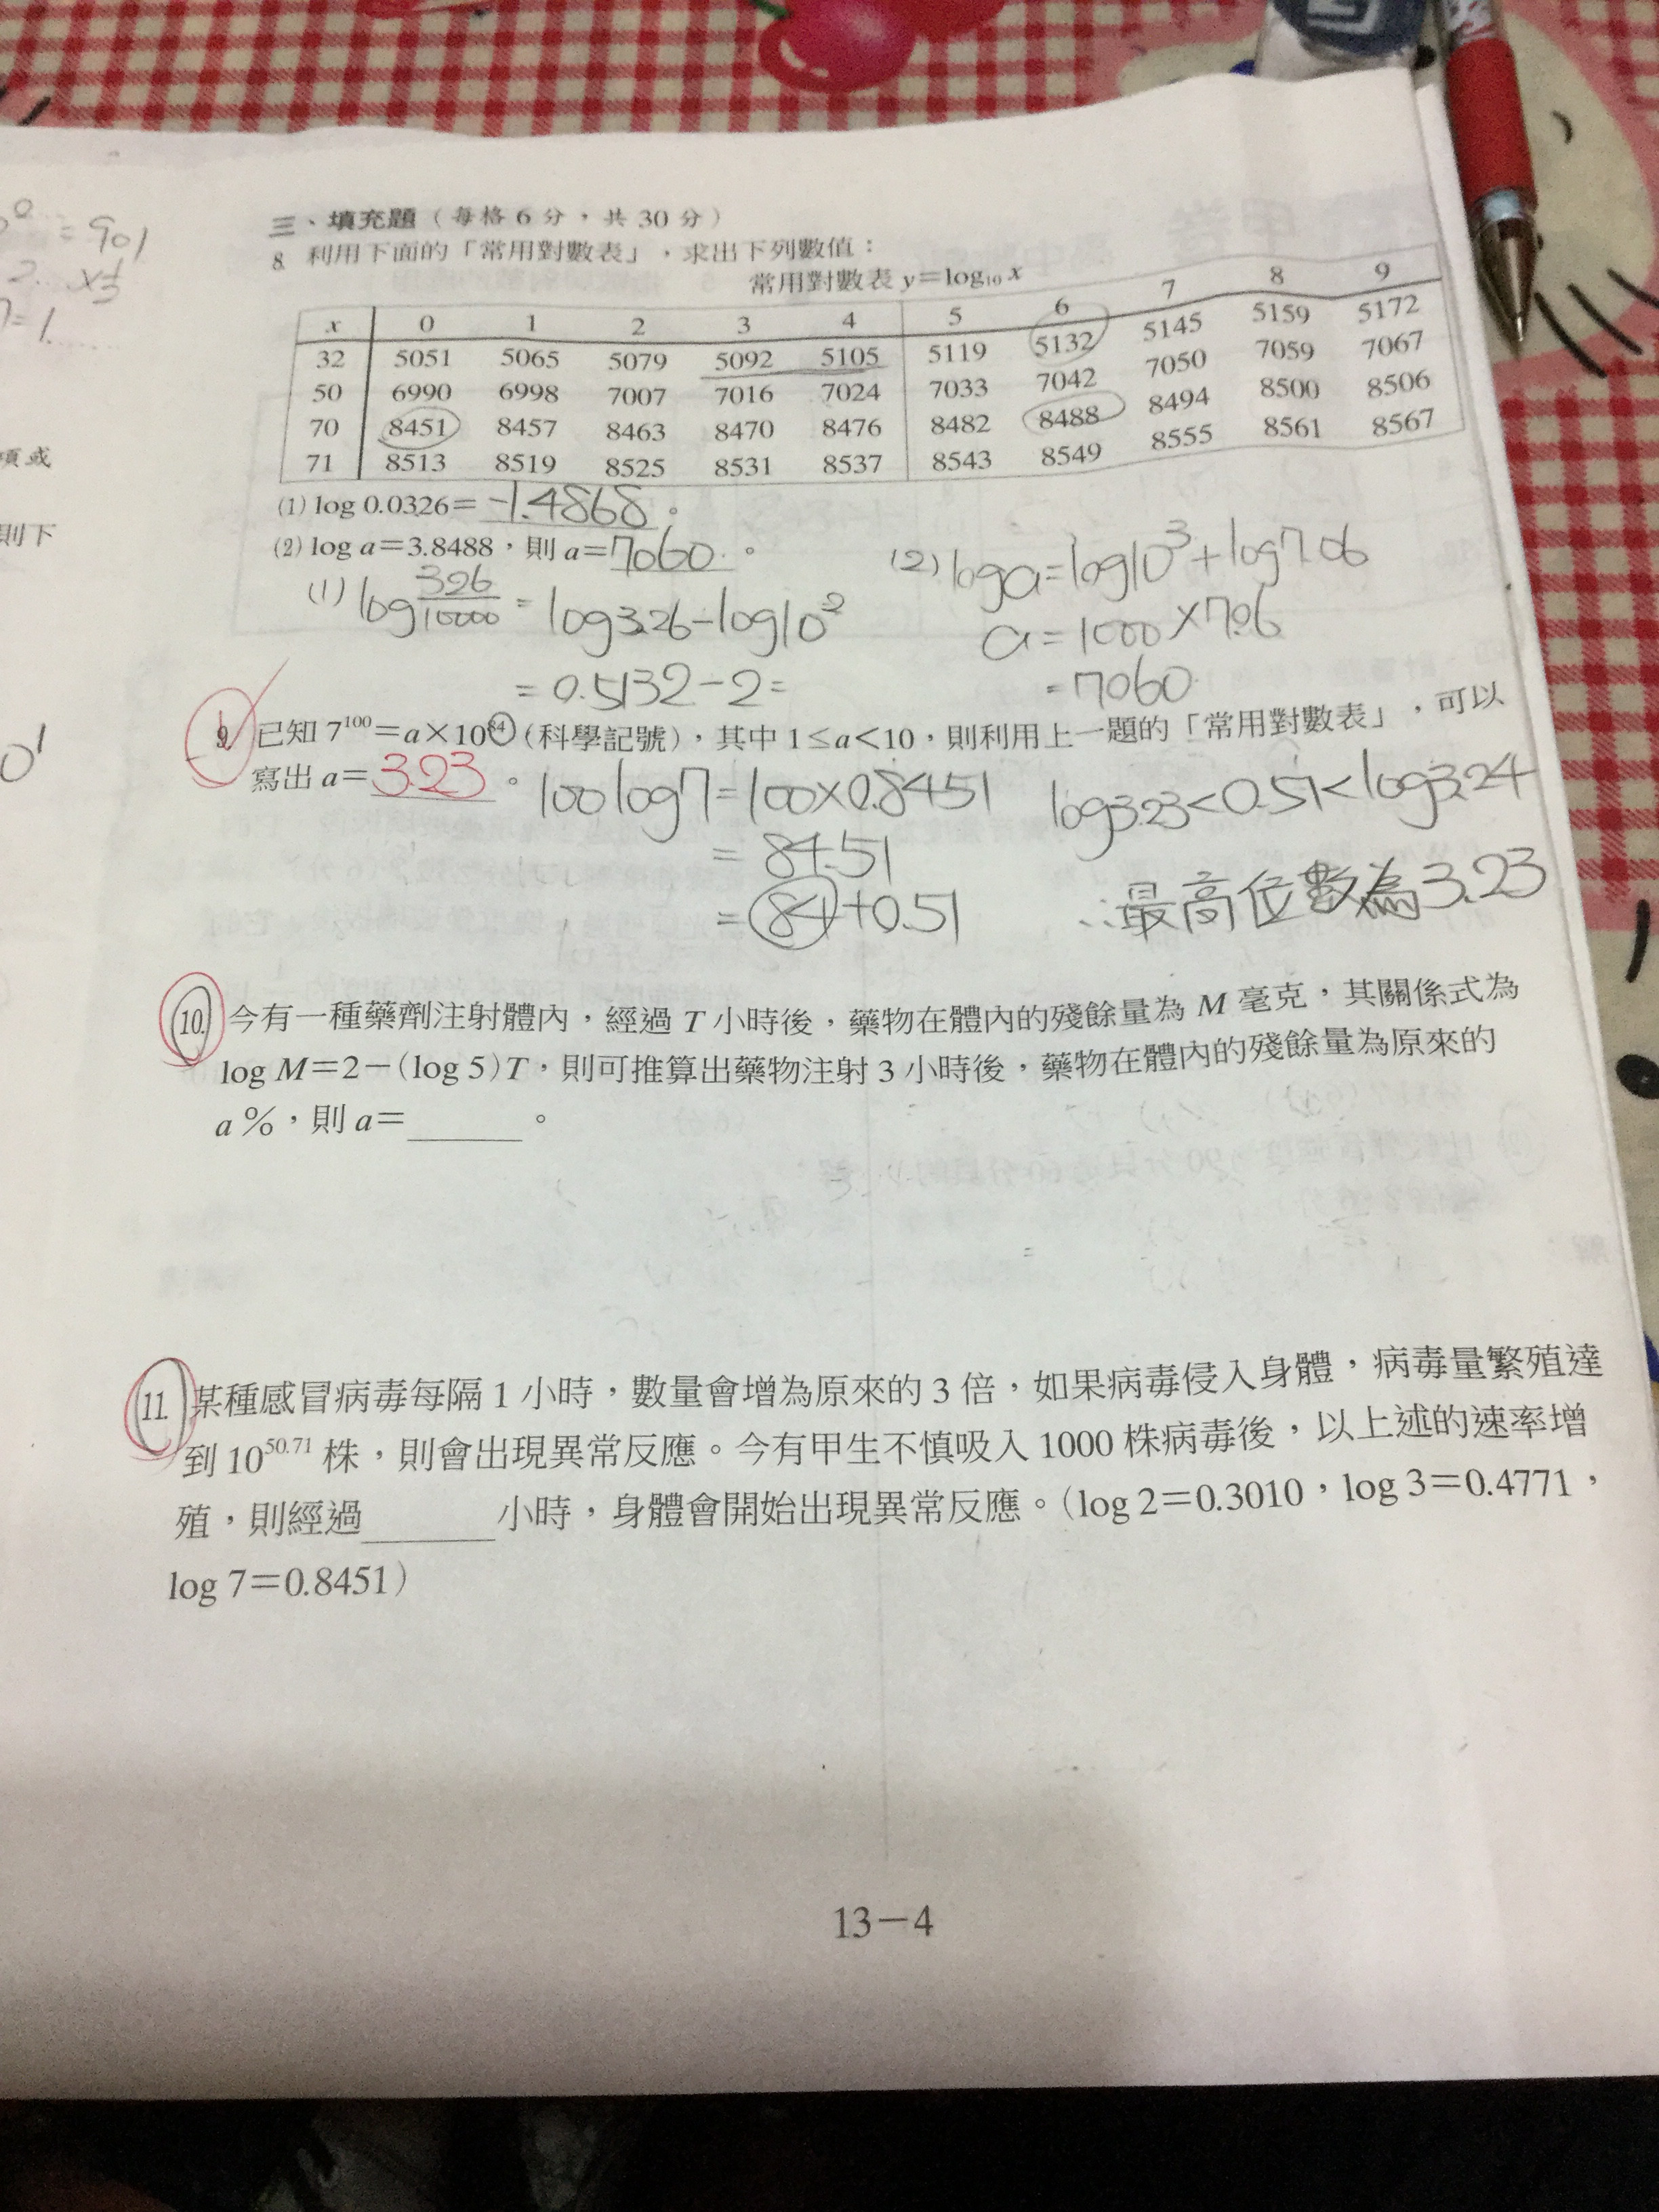 三、填充題(每格6分,共30分)
8. 利用下面的「常用對數表」,求出下列數值:
常用對數表 y=log₁₀ x
x 0 1 2 3 4 5 6 7 8 9
32 5051 5065 5079 5092 5105 5119 5132 5145 5159 5172
50 6990 6998 7007 7016 7024 7033 7042 7050 7059 7067
70 8451 8457 8463 8470 8476 8482 8488 8494 8500 8506
71 8513 8519 8525 8531 8537 8543 8549 8555 8561 8567
(1) log 0.0326= -1.4868 。
(2) log a=3.8488,則 a= 7060 。
(1) log 326/10000 = log3.26-log10²
= 0.5132-2=
(2) loga=log10³+log7.06
a=1000×7.06
=7060
9. 已知 7¹⁰⁰=a×10⁸⁴(科學記號),其中 1≤a<10,則利用上一題的「常用對數表」,可以
寫出 a= 3.23 。
100log7=100×0.8451
= 84.51
= 84+0.51
log3.23<0.51<log3.24
∴最高位數為3.23
10. 今有一種藥劑注射體內,經過 T 小時後,藥物在體內的殘餘量為 M 毫克,其關係式為
log M=2-(log 5)T,則可推算出藥物注射 3 小時後,藥物在體內的殘餘量為原來的
a %,則 a=______。
11. 某種感冒病毒每隔 1 小時,數量會增為原來的 3 倍,如果病毒侵入身體,病毒量繁殖達
到 10⁵⁰·⁷¹ 株,則會出現異常反應。今有甲生不慎吸入 1000 株病毒後,以上述的速率增
殖,則經過______小時,身體會開始出現異常反應。(log 2=0.3010,log 3=0.4771,
log 7=0.8451)
13-4
項或
則下
=901